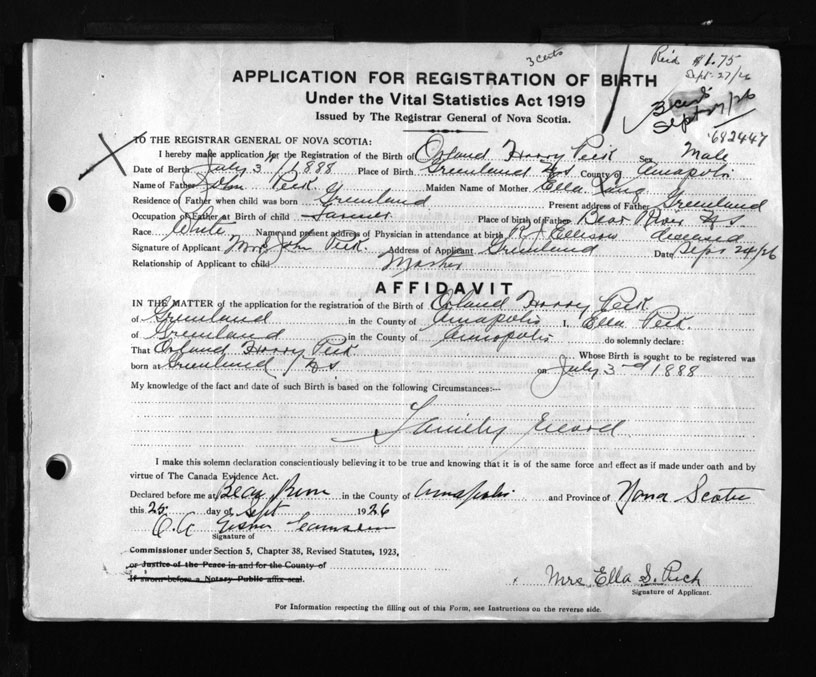 3 Cents
$1.75
Sept. 27/26
APPLICATION FOR REGISTRATION OF BIRTH
Under the Vital Statistics Act 1919
3 cents
Issued by The Registrar General of Nova Scotia.
Sept 27/26
682447
TO THE REGISTRAR GENERAL OF NOVA SCOTIA:
I hereby make application for the Registration of the Birth of Orland Harry Peck Sex Male
Date of Birth July 3 / 1888 Place of Birth Greenland N.S. County of Annapolis
Name of Father John Peck Maiden Name of Mother Ella
Residence of Father when child was born Greenland Present address of Father Greenland
Occupation of Father at Birth of child Farmer Place of birth of Father Bear River N.S.
Race White Name and present address of Physician in attendance at birth R. J. Ellison deceased
Signature of Applicant Mrs John Peck. Address of Applicant Greenland Date Sept 24/26
Relationship of Applicant to child Mother
AFFIDAVIT
IN THE MATTER of the application for the registration of the Birth of Orland Harry Peck
of Greenland in the County of Annapolis I, Ella Peck.
of Greenland in the County of Annapolis do solemnly declare:
That Orland Harry Peck Whose Birth is sought to be registered was
born at Greenland N.S. on July 3rd 1888
My knowledge of the fact and date of such Birth is based on the following Circumstances:—
Family record
I make this solemn declaration conscientiously believing it to be true and knowing that it is of the same force and effect as if made under oath and by
virtue of The Canada Evidence Act.
Declared before me at Bear River in the County of Annapolis and Province of Nova Scotia
this 25 day of Sept 1926
Signature of
Commissioner under Section 5, Chapter 38, Revised Statutes, 1923,
or Justice of the Peace in and for the County of
If sworn before a Notary Public affix seal.
Mrs Ella S. Peck
Signature of Applicant.
For Information respecting the filling out of this Form, see Instructions on the reverse side.